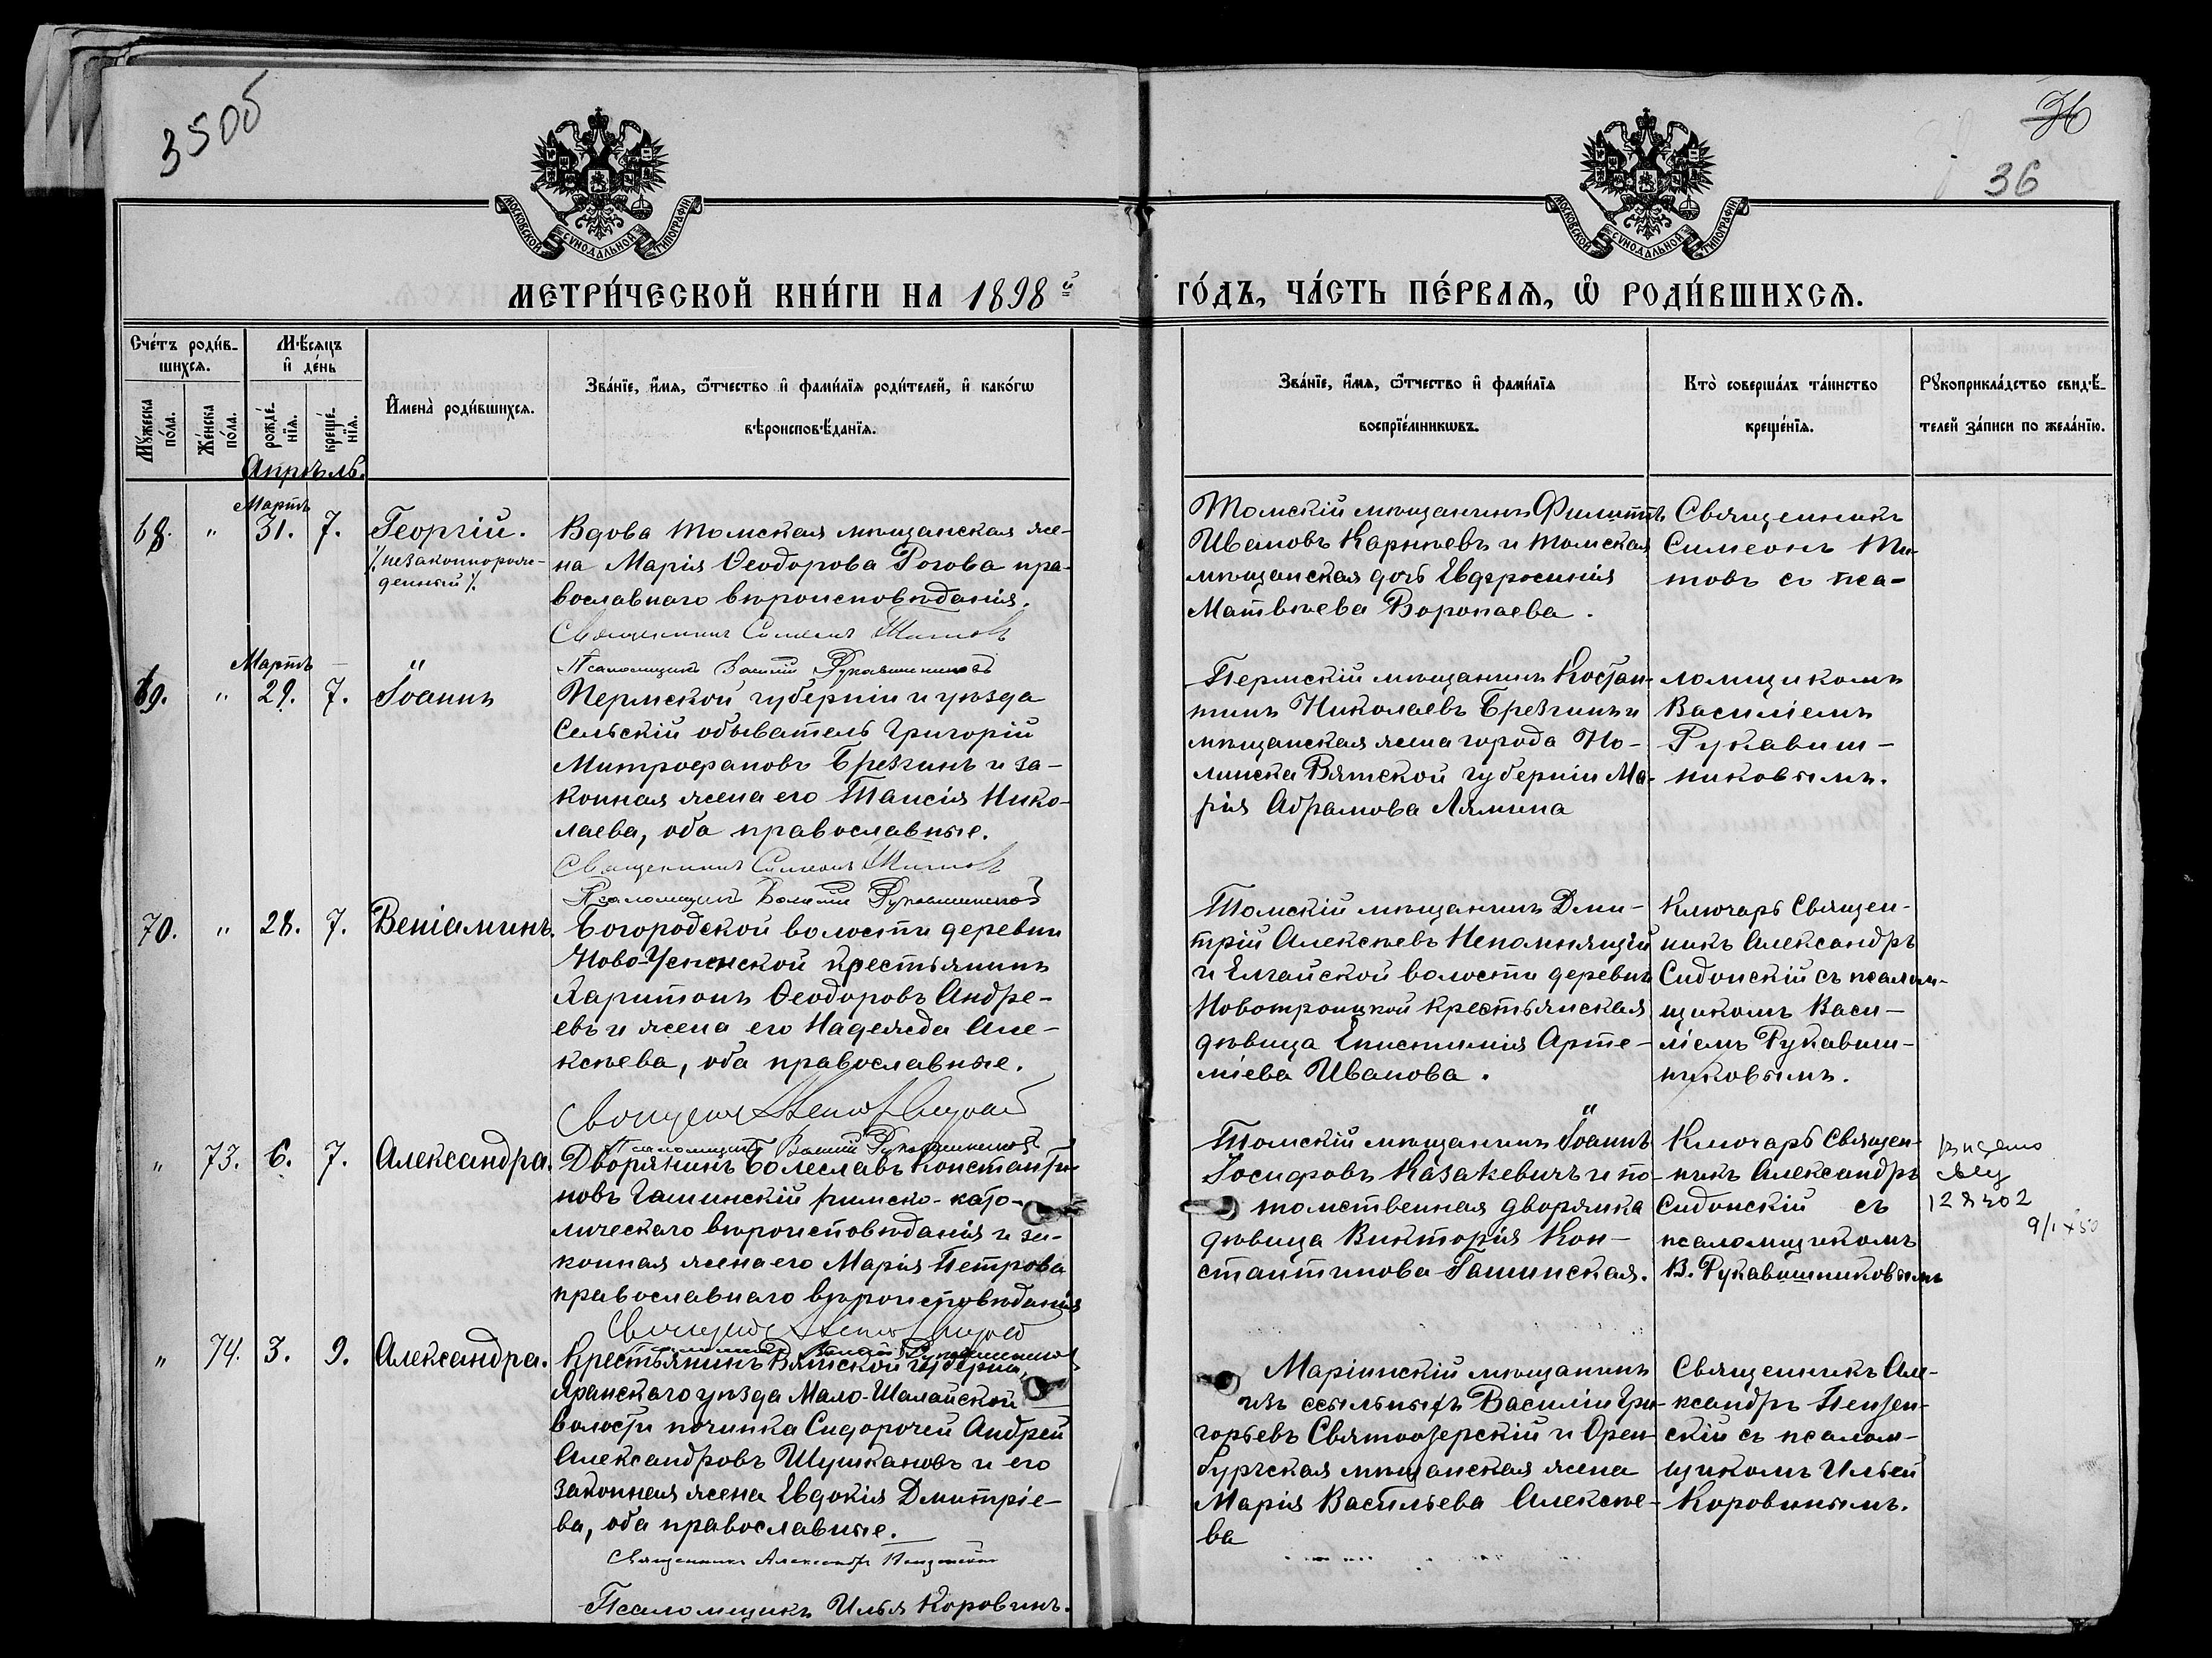 35об
36
36
МОСКОВСКОЙ СУНОДАЛЬНОЙ ТИПОГРАФІИ
МОСКОВСКОЙ СУНОДАЛЬНОЙ ТИПОГРАФІИ
МЕТРИ́ЧЕСКОЙ КНИ́ГИ НА 1898й ГО́ДЪ, ЧА́СТЬ ПЕ́РВАѦ, Ѡ РОДИ́ВШИХСѦ.
Сче́тъ роди́в-
шихсѧ.
Мѣ́сѧцъ
и де́нь
Мꙋ́жеска
по́ла.
Же́нска
по́ла.
рожде́-
нїѧ.
креще́-
нїѧ.
И҆мена̀ роди́вшихсѧ.
Зва́нїе, и҆́мѧ, ѻ҆́тчество и҆ фами́лїѧ роди́телей, и҆ како́гѡ
вѣроисповѣ́данїѧ.
Зва́нїе, и҆́мѧ, ѻ҆́тчество и҆ фами́лїѧ
воспрїе́мникѡвъ.
Кто̀ соверша́лъ та́инство
креще́нїѧ.
Рꙋкоприкла́дство свидѣ́-
телей за́писи по жела́нїю.
Апрѣль.
Мартъ
68. " 31. 7. Георгій.
% незаконнорож-
денный %
Вдова Томская мѣщанская же-
на Марія Ѳеодорова Рогова пра-
вославнаго вѣроисповѣданія.
Священникъ Симеонъ Титовъ
Псаломщикъ Василій Рукавишниковъ
Томскій мѣщанинъ Филиппъ
Ивановъ Карпѣевъ и Томская
мѣщанская дочь Евфросинія
Матвѣева Воропаева.
Священникъ
Симеонъ Ти-
товъ съ пса-
Мартъ
69. " 29. 7. Іоаннъ
Пермской губерніи и уѣзда
Сельскій обыватель Григорій
Митрофановъ Брезгинъ и за-
конная жена его Таисія Нико-
лаева, оба православные.
Священникъ Симеонъ Титовъ
Псаломщикъ Василій Рукавишниковъ
Пермскій мѣщанинъ Костан-
тинъ Николаевъ Брезгинъ и
мѣщанская жена города Но-
линска Вятской губерніи Ма-
рія Абрамова Лямина
ломщикомъ
Василіемъ
Рукавиш-
никовымъ.
70. " 28. 7. Веніаминъ.
Богородской волости деревни
Ново-Успенской крестьянинъ
Харитонъ Ѳеодоровъ Андре-
евъ и жена его Надежда Але-
ксѣева, оба православные.
Псаломщикъ Василій Рукавишниковъ
Томскій мѣщанинъ Дми-
трій Алексѣевъ Непомнящій
и Елгайской волости деревни
Новотроицкой крестьянская
дѣвица Епистимія Арте-
міева Иванова.
Ключарь Священ-
никъ Александръ
Сидонскій съ псалом-
щикомъ Васи-
ліемъ Рукавиш-
никовымъ.
" 73. 6. 7. Александра.
Дворянинъ Болеславъ Константи-
новъ Гашинскій римско-като-
лическаго вѣроисповѣданія и за-
конная жена его Марія Петрова
православнаго вѣроисповѣданія
Томскій мѣщанинъ Іоаннъ
Іосифовъ Казакевичъ и по-
томственная дворянка
дѣвица Викторія Кон-
стантинова Гашинская.
Ключарь Священ-
никъ Александръ
Сидонскій съ
псаломщикомъ
В. Рукавишниковымъ
128402
9/I
" 74. 3. 9. Александра.
Крестьянинъ Вятской губерніи,
Яранскаго уѣзда Мало-Шалайской
волости починка Сидорочей Андрей
Александровъ Шушкановъ и его
законная жена Евдокія Дмитріе-
ва, оба православные.
Священникъ Александръ Пензенскій
Псаломщикъ Илья Коровинъ.
Маріинскій мѣщанинъ
изъ ссыльныхъ Василій Гри-
горьевъ Святоозерскій и Орен-
бургская мѣщанская жена
Марія Васильева Алексѣе-
ва
Священникъ Але-
ксандръ Пензен-
скій съ псалом-
щикомъ Ильей
Коровинымъ.